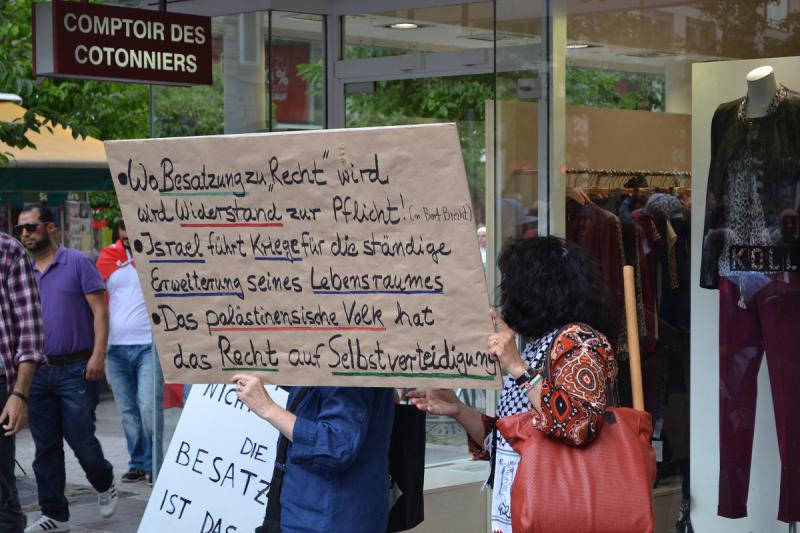 COMPTOIR DES
COTONNIERS
• Wo Besatzung zu „Recht“ wird
wird Widerstand zur Pflicht! (n. Bert Brecht)
• Israel führt Kriege für die ständige
Erweiterung seines Lebensraumes
• Das palästinensische Volk hat
das Recht auf Selbstverteidigung
NICH
DIE
BESATZ
IST DAS